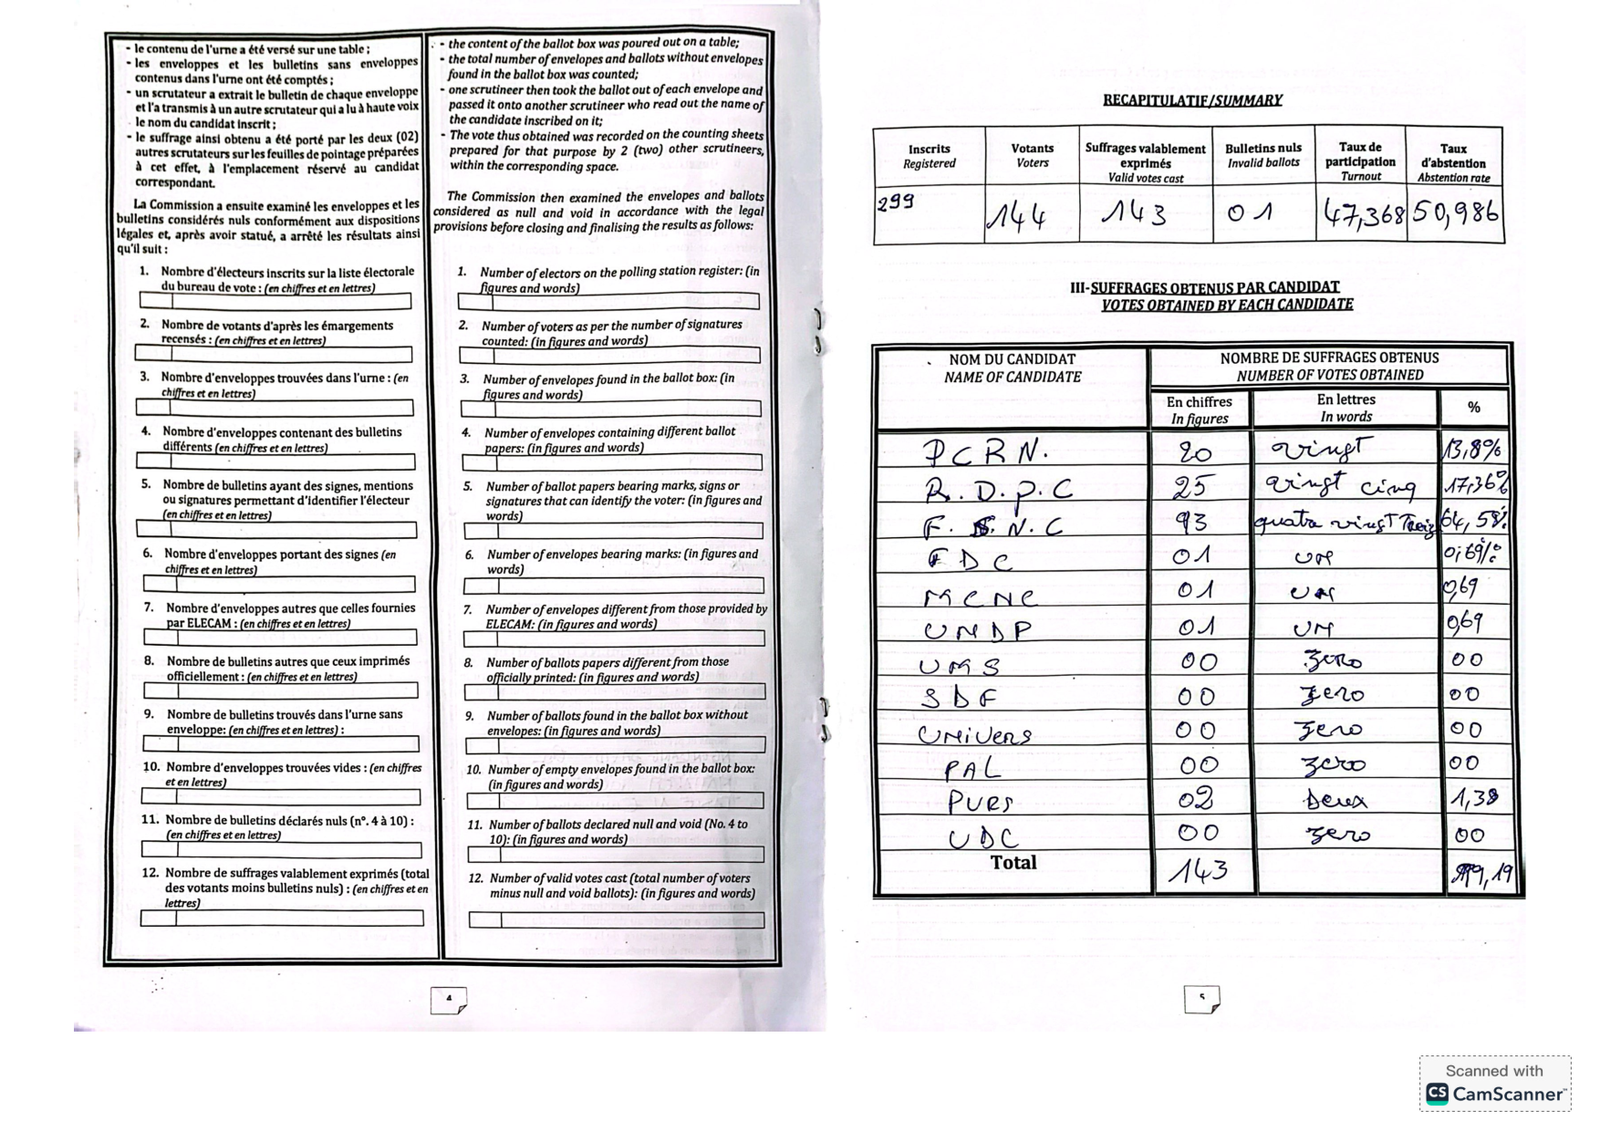 - le contenu de l'urne a été versé sur une table ;
- les enveloppes et les bulletins sans enveloppes
contenus dans l'urne ont été comptés ;
- un scrutateur a extrait le bulletin de chaque enveloppe
et l'a transmis à un autre scrutateur qui a lu à haute voix
le nom du candidat inscrit ;
- le suffrage ainsi obtenu a été porté par les deux (02)
autres scrutateurs sur les feuilles de pointage préparées
à cet effet, à l'emplacement réservé au candidat
correspondant.
La Commission a ensuite examiné les enveloppes et les
bulletins considérés nuls conformément aux dispositions
légales et, après avoir statué, a arrêté les résultats ainsi
qu'il suit :
1. Nombre d'électeurs inscrits sur la liste électorale
du bureau de vote : (en chiffres et en lettres)
2. Nombre de votants d'après les émargements
recensés : (en chiffres et en lettres)
3. Nombre d'enveloppes trouvées dans l'urne : (en
chiffres et en lettres)
4. Nombre d'enveloppes contenant des bulletins
différents (en chiffres et en lettres)
5. Nombre de bulletins ayant des signes, mentions
ou signatures permettant d'identifier l'électeur
(en chiffres et en lettres)
6. Nombre d'enveloppes portant des signes (en
chiffres et en lettres)
7. Nombre d'enveloppes autres que celles fournies
par ELECAM : (en chiffres et en lettres)
8. Nombre de bulletins autres que ceux imprimés
officiellement : (en chiffres et en lettres)
9. Nombre de bulletins trouvés dans l'urne sans
enveloppe: (en chiffres et en lettres) :
10. Nombre d'enveloppes trouvées vides : (en chiffres
et en lettres)
11. Nombre de bulletins déclarés nuls (n°. 4 à 10) :
(en chiffres et en lettres)
12. Nombre de suffrages valablement exprimés (total
des votants moins bulletins nuls) : (en chiffres et en
lettres)
- the content of the ballot box was poured out on a table;
- the total number of envelopes and ballots without envelopes
found in the ballot box was counted;
- one scrutineer then took the ballot out of each envelope and
passed it onto another scrutineer who read out the name of
the candidate inscribed on it;
- The vote thus obtained was recorded on the counting sheets
prepared for that purpose by 2 (two) other scrutineers,
within the corresponding space.
The Commission then examined the envelopes and ballots
considered as null and void in accordance with the legal
provisions before closing and finalising the results as follows:
1. Number of electors on the polling station register: (in
figures and words)
2. Number of voters as per the number of signatures
counted: (in figures and words)
3. Number of envelopes found in the ballot box: (in
figures and words)
4. Number of envelopes containing different ballot
papers: (in figures and words)
5. Number of ballot papers bearing marks, signs or
signatures that can identify the voter: (in figures and
words)
6. Number of envelopes bearing marks: (in figures and
words)
7. Number of envelopes different from those provided by
ELECAM: (in figures and words)
8. Number of ballots papers different from those
officially printed: (in figures and words)
9. Number of ballots found in the ballot box without
envelopes: (in figures and words)
10. Number of empty envelopes found in the ballot box:
(in figures and words)
11. Number of ballots declared null and void (No. 4 to
10): (in figures and words)
12. Number of valid votes cast (total number of voters
minus null and void ballots): (in figures and words)
4
RECAPITULATIF/SUMMARY
Inscrits Registered Votants Voters Suffrages valablement exprimés Valid votes cast Bulletins nuls Invalid ballots Taux de participation Turnout Taux d'abstention Abstention rate
299 144 143 01 47,368 50,986
III-SUFFRAGES OBTENUS PAR CANDIDAT
VOTES OBTAINED BY EACH CANDIDATE
NOM DU CANDIDAT NOMBRE DE SUFFRAGES OBTENUS
NAME OF CANDIDATE NUMBER OF VOTES OBTAINED
En chiffres En lettres %
In figures In words
P C R N. 20 vingt 13,8%
R. D. P. C 25 vingt cinq 17,36%
F. S. N. C 93 quatre vingt Treiz 64,58%
F D C 01 un 0,69%
M C N C 01 un 0,69
U N D P 01 un 0,69
U M S 00 zero 00
S D F 00 zero 00
UNIVERS 00 zero 00
PAL 00 zero 00
PURS 02 Deux 1,38
UDC 00 zero 00
Total 143 99,19
5
Scanned with
CS CamScanner